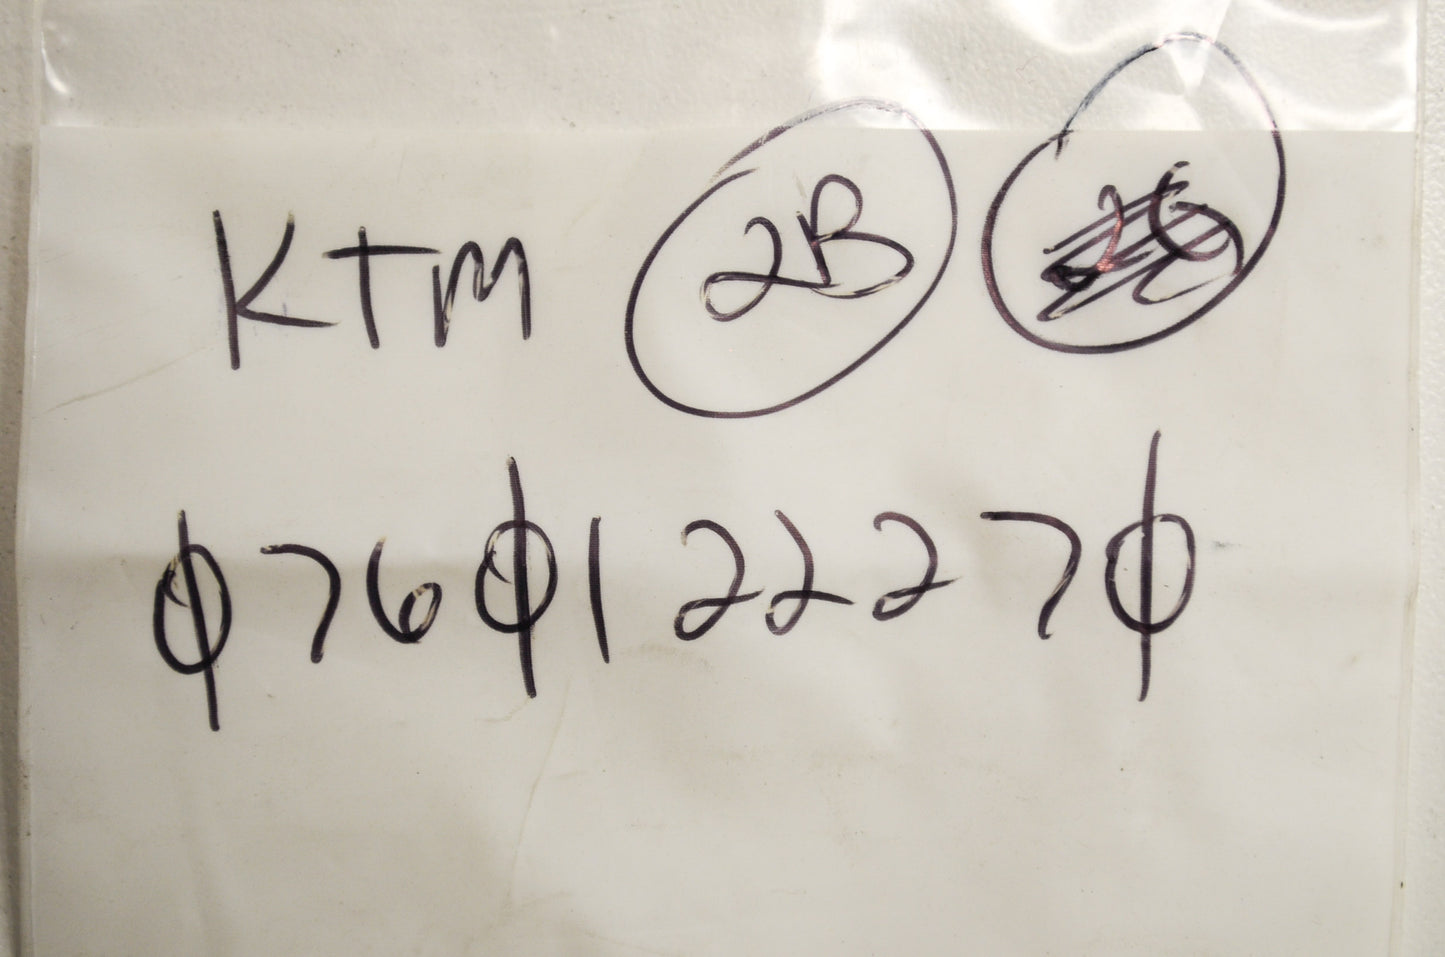 KTM 2B
0760122270